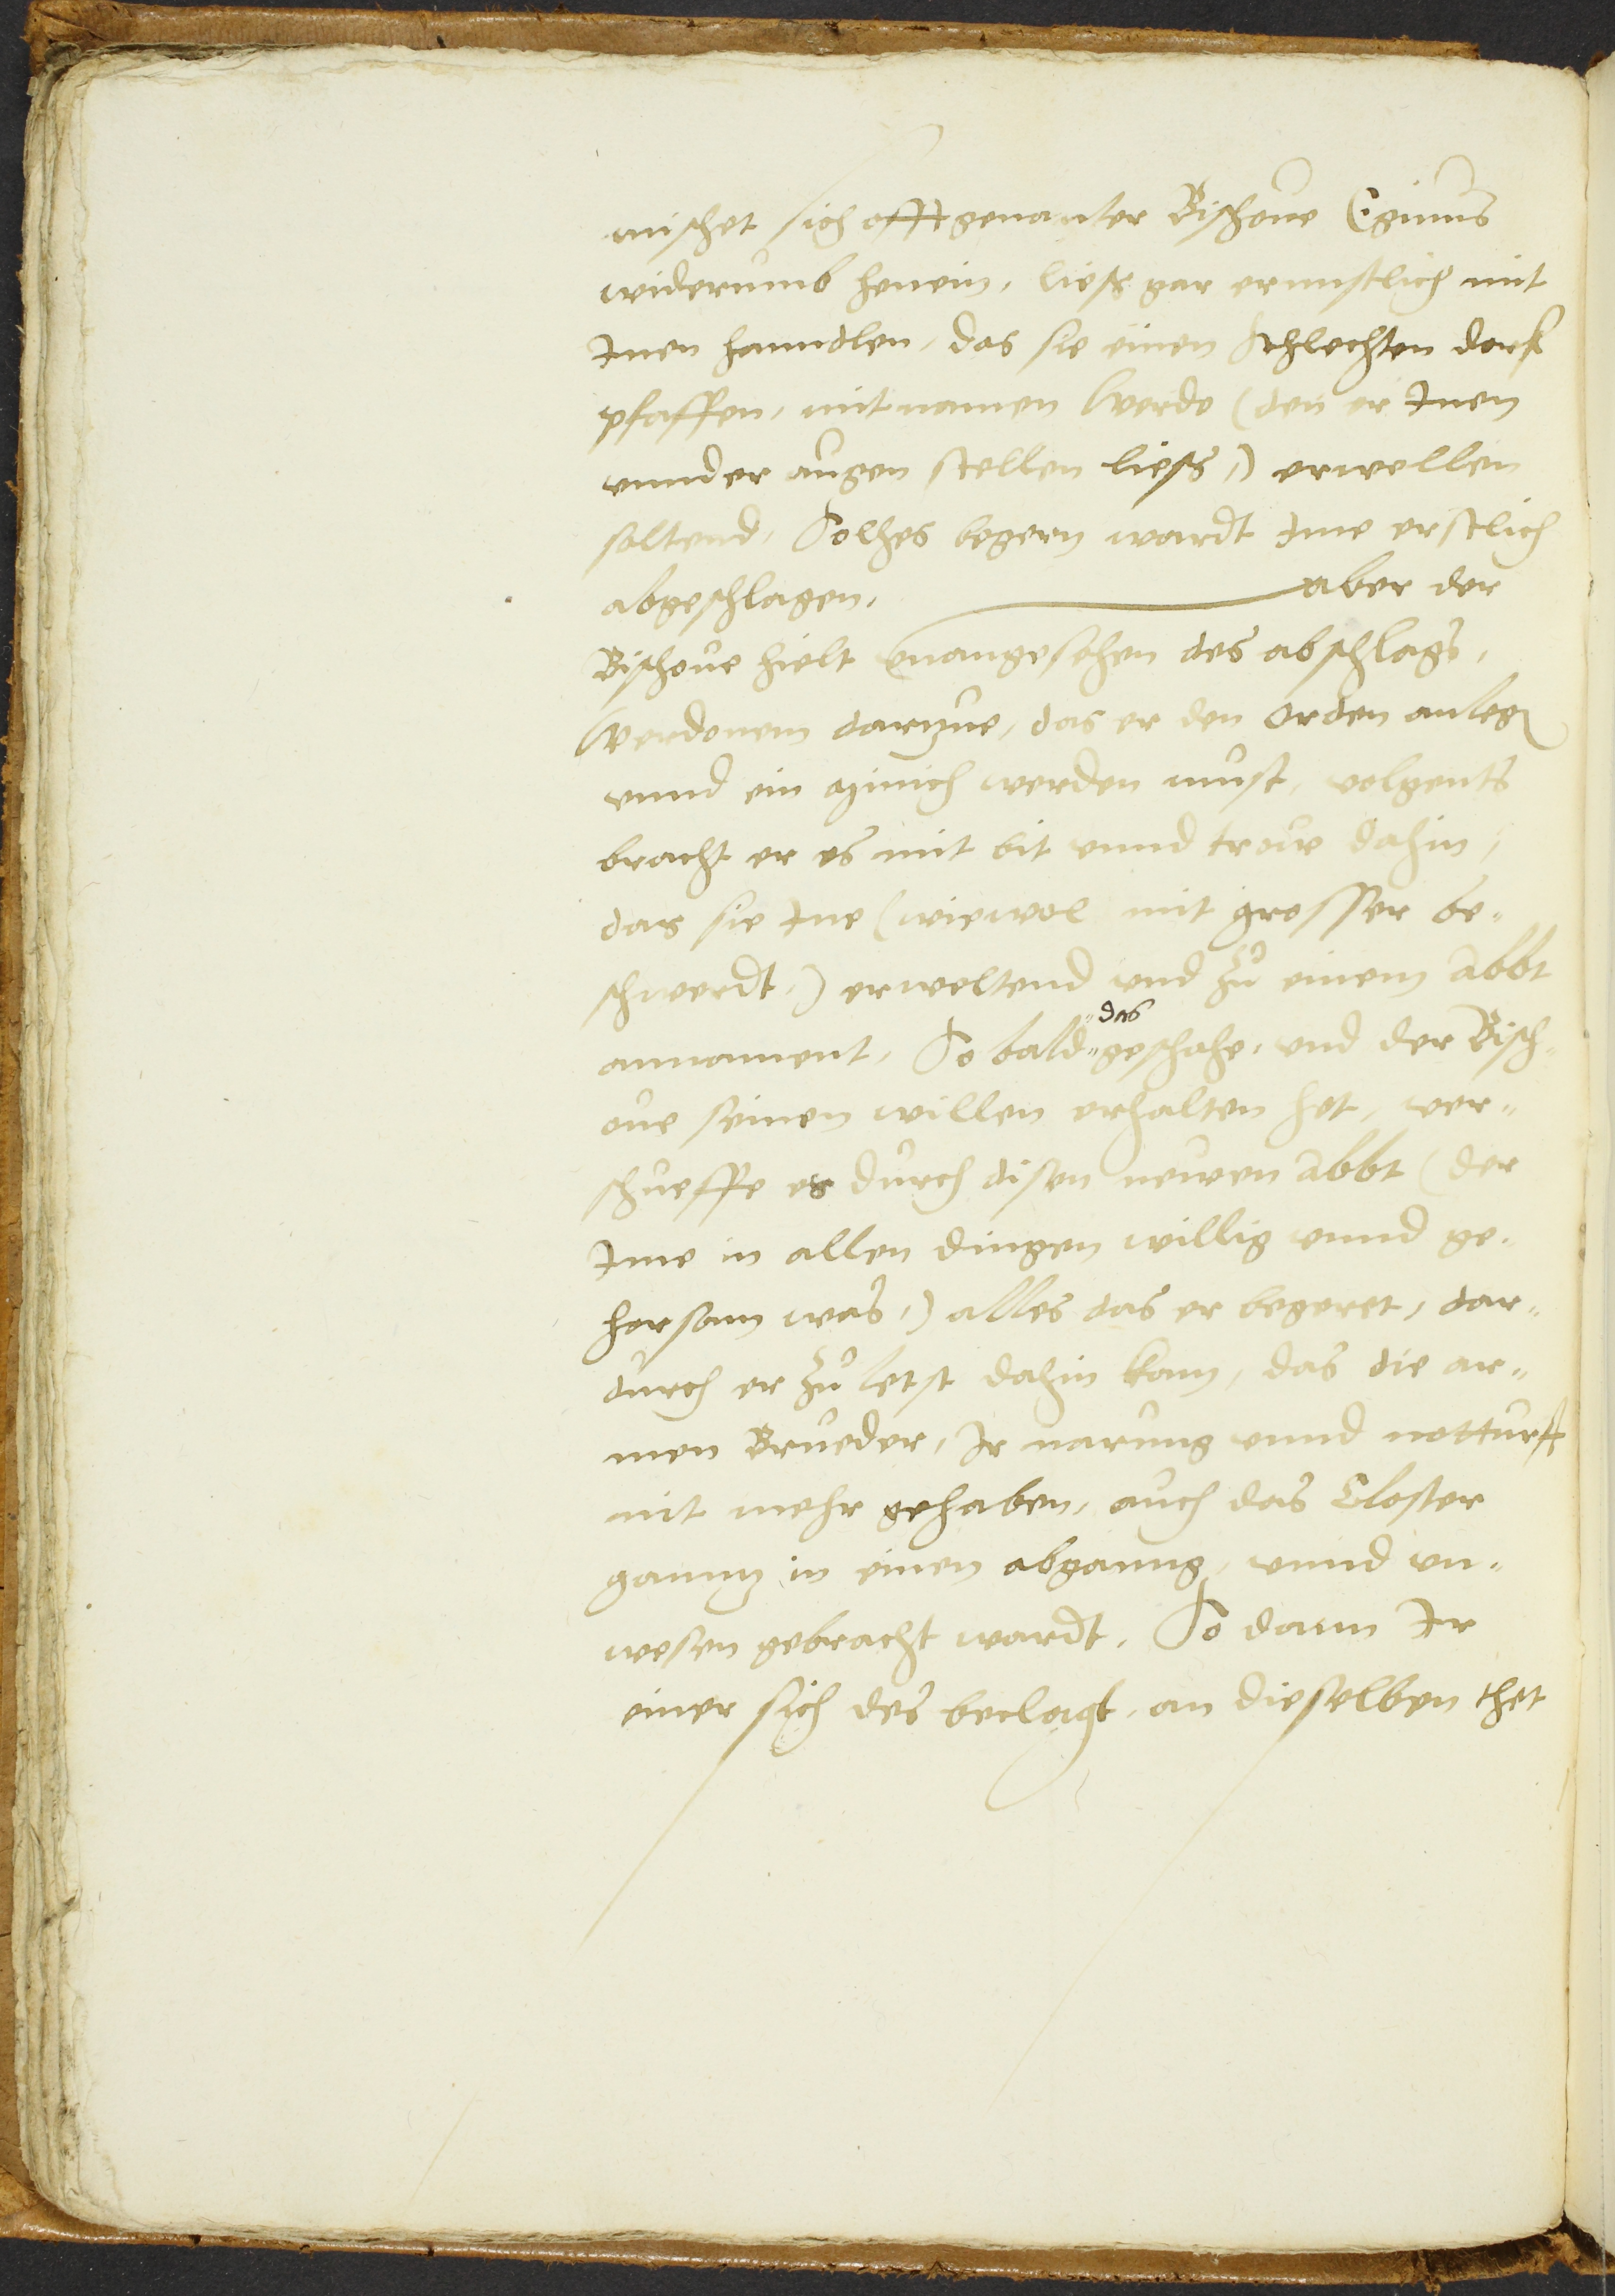 mischet sich offtgenanter Bischove Eginus
widerumb henein, liesß gar ernnstlich mit
Inen hanndlen, das sie einen schlechten dorf
pfaffen, mit namen Werdo (den er Inen
vnnder augen stellen liesß,) erwellen
soltend, Solches begern wardt Ime erstlich
abgeschlagen, aber der
Bischoue hielt vnangesehen des abschlags,
Werdonem darzue, das er den Orden anlegen
vnnd ein münich werden must, volgents
bracht er es mit bit vnnd trow dahin,
das sie Ine (wiewol mit grosser be-
schwerdt,) erweltend vnd zu einem Abbt
annament, So bald das geschahe, vnd der Bisch-
oue seinen willen erhalten het, ver-
schueffe er durch disen newen Abbt (der
Ime in allen dingen willig vnnd ge-
horsam was,) alles das er begeret, dar-
durch er zu letst dahin kam, das die ar-
men Brueder, Ir narung vnnd notturft
nit mehr gehaben, auch das Closter
ganntz in einen abganng, vnnd vn-
wesen gebracht wardt, So dann Ir
einer sich des beclagt, an dieselben thet